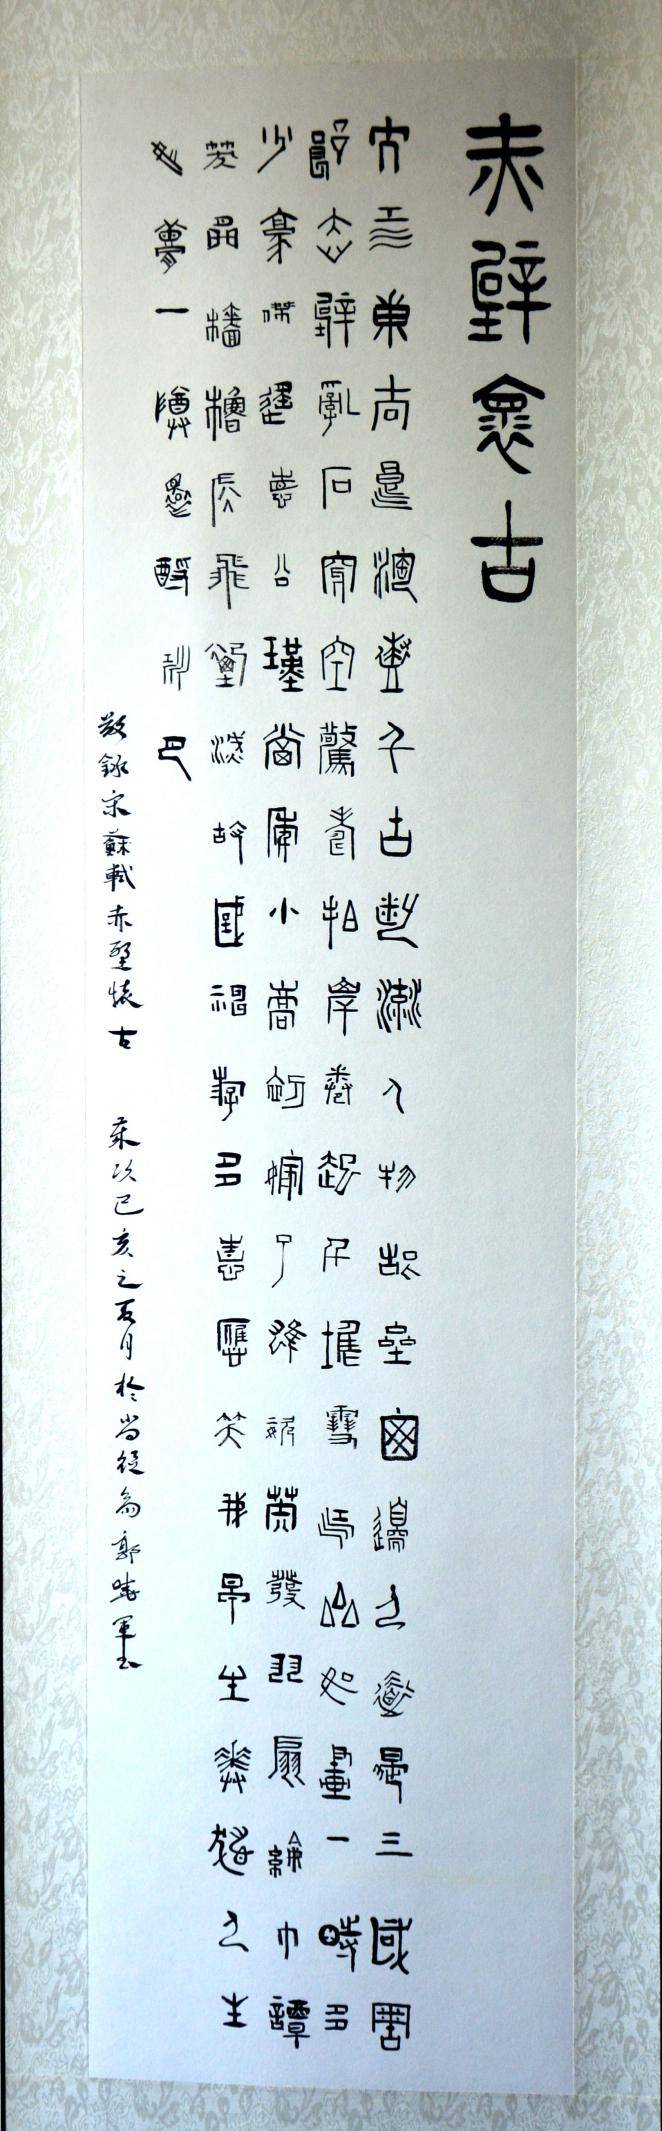 赤壁懷古
大江東去浪淘盡千古風流人物故壘西邊人道是三國周
郎赤壁亂石穿空驚濤拍岸卷起千堆雪江山如畫一時多
少豪傑遙想公瑾當年小喬初嫁了雄姿英發羽扇綸巾談
笑間檣櫓灰飛煙滅故國神遊多情應笑我早生華髮人生
如夢一樽還酹江月
敬錄宋蘇軾赤壁懷古 歲次己亥之五月於尚